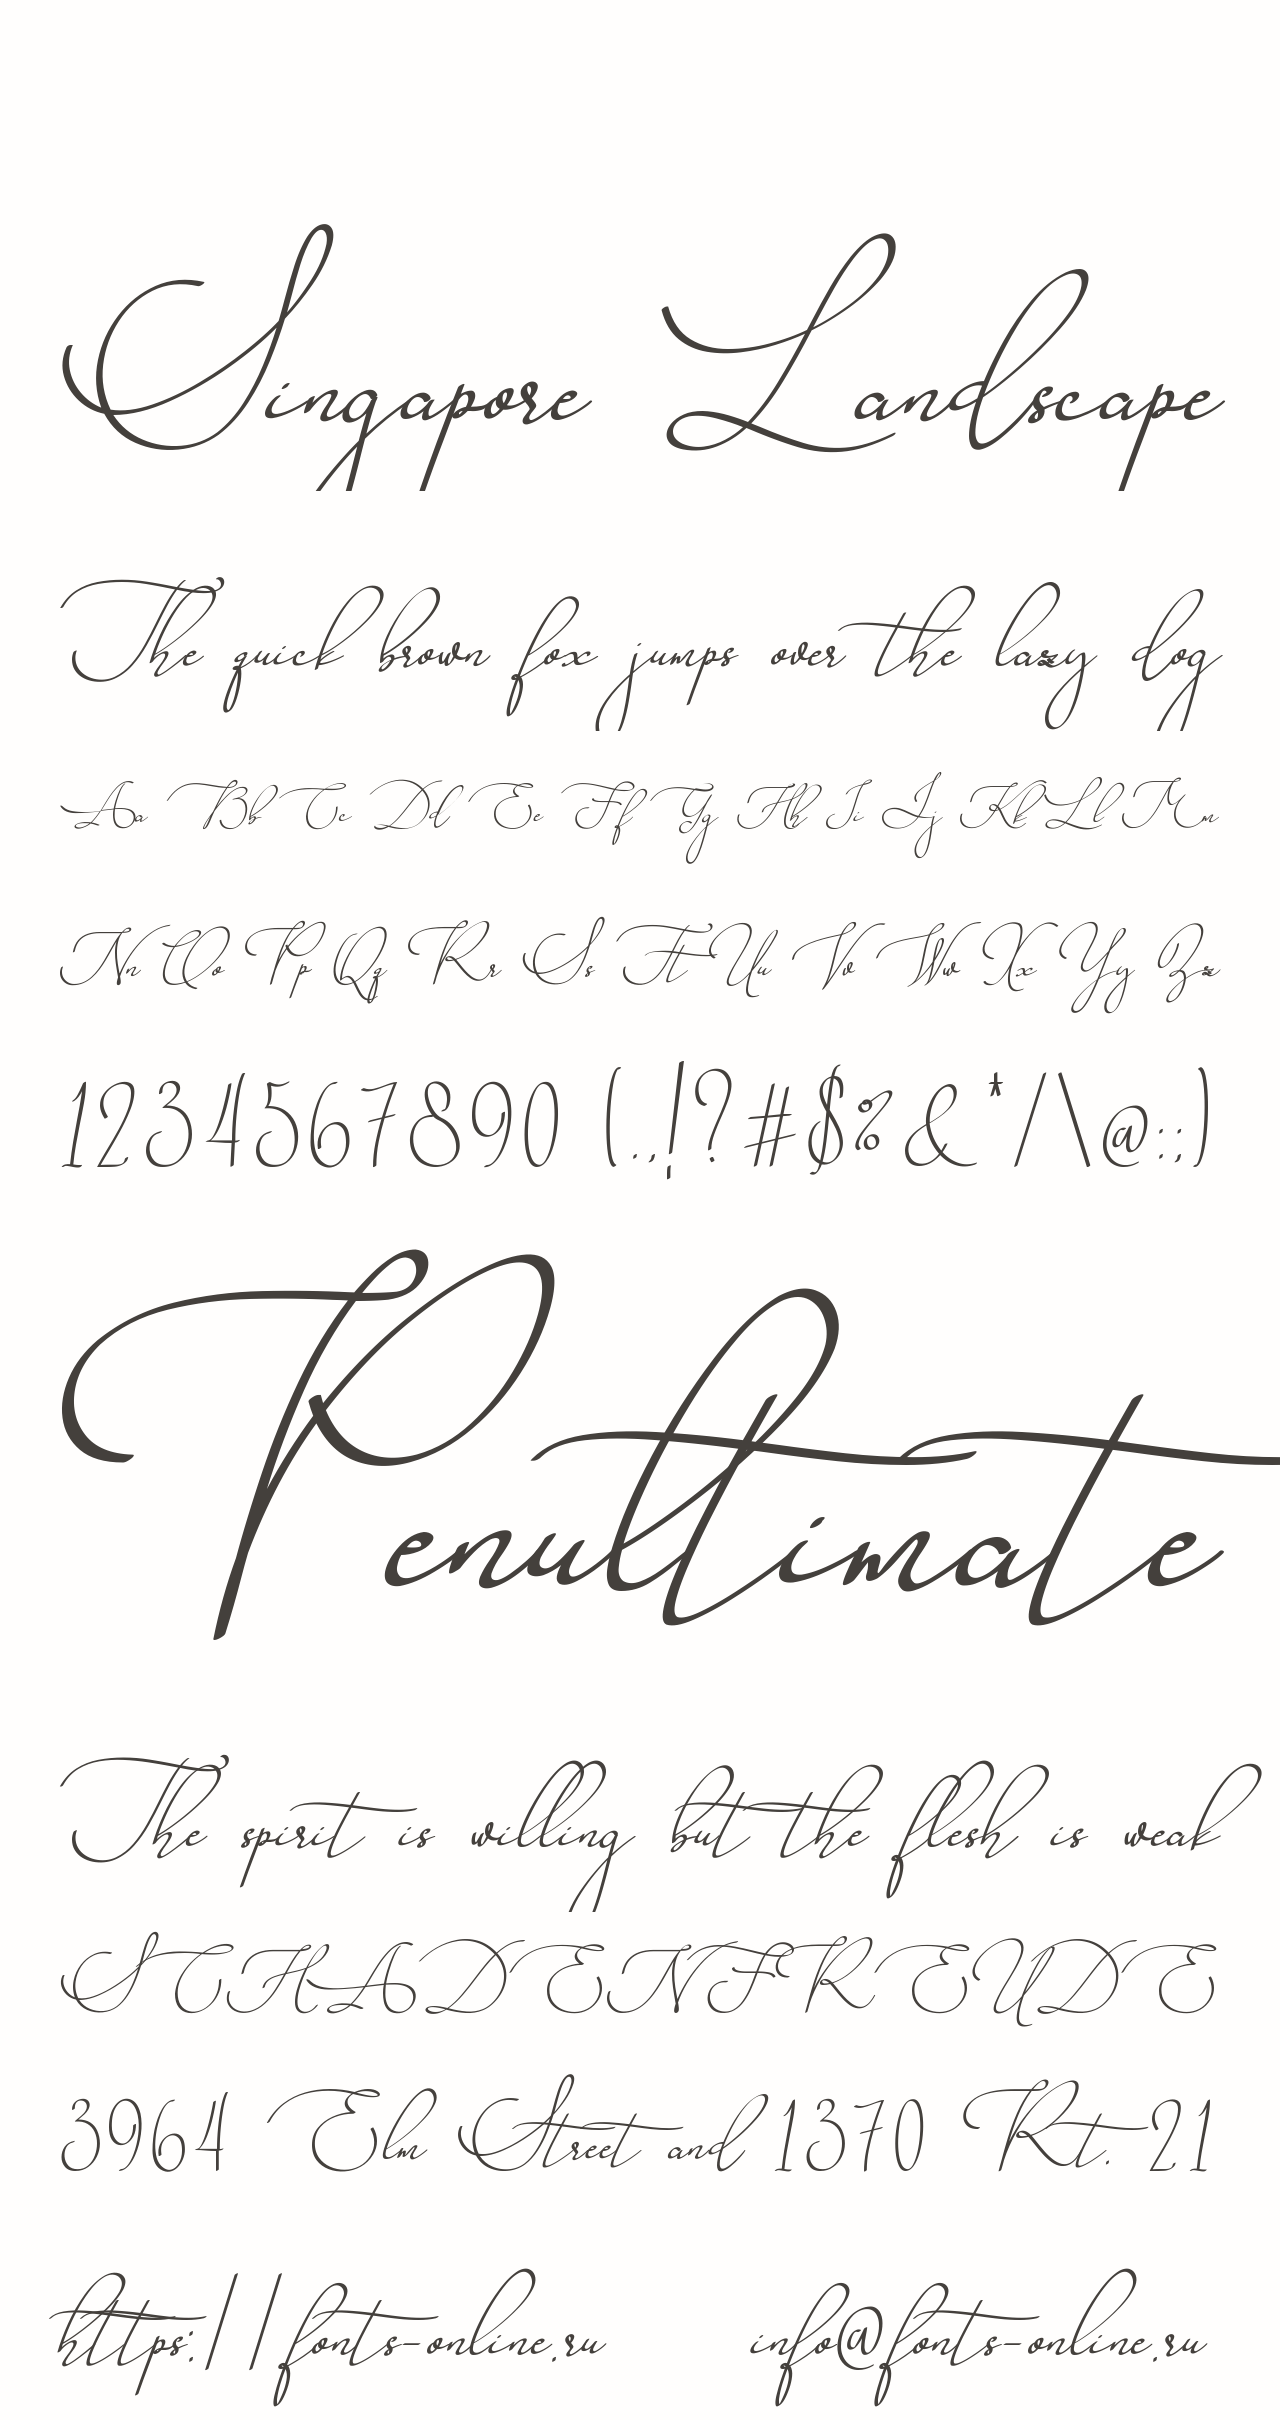 Singapore Landscape
The quick brown fox jumps over the lazy dog
Aa Bb Cc Dd Ee Ff Gg Hh Ii Jj Kk Ll Mm
Nn Oo Pp Qq Rr Ss Tt Uu Vv Ww Xx Yy Zz
1234567890 (.,!?#$%&*/\@:;)
Penultimate
The spirit is willing but the flesh is weak
SCHADENFREUDE
3964 Elm Street and 1370 Rt. 21
https://fonts-online.ru info@fonts-online.ru